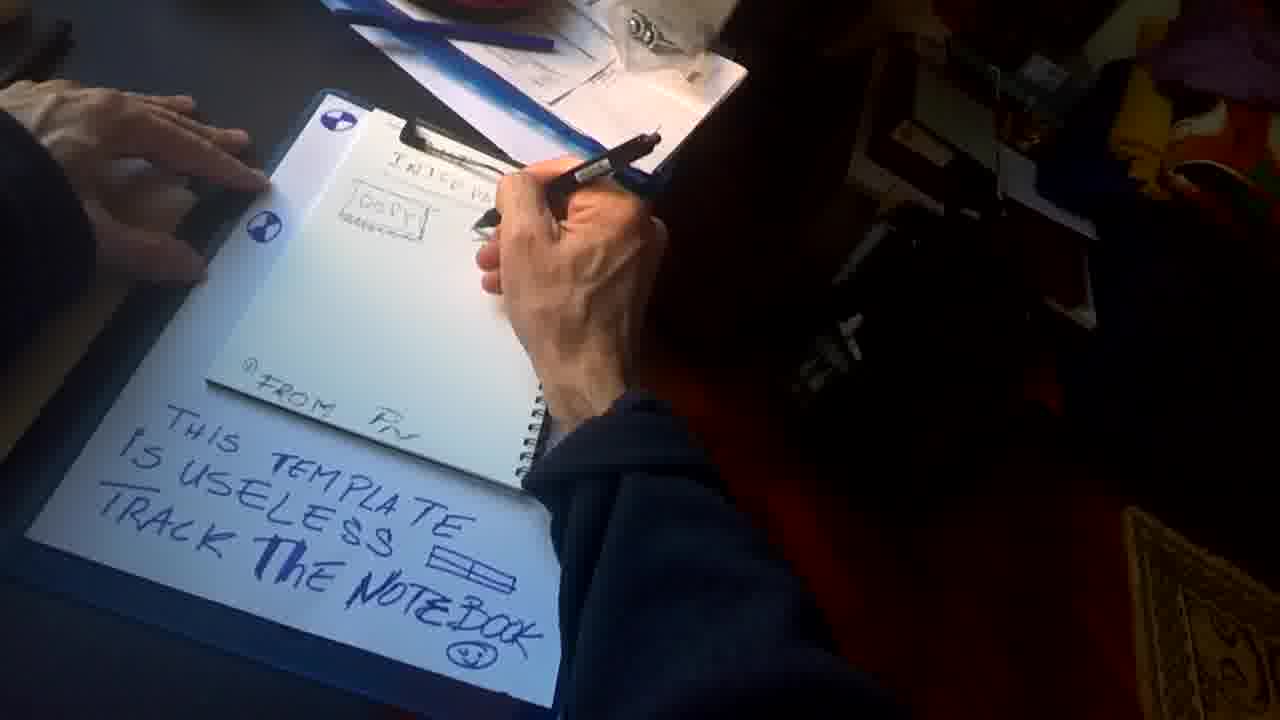 COPY
① FROM
THIS TEMPLATE
IS USELESS
TRACK THE NOTEBOOK